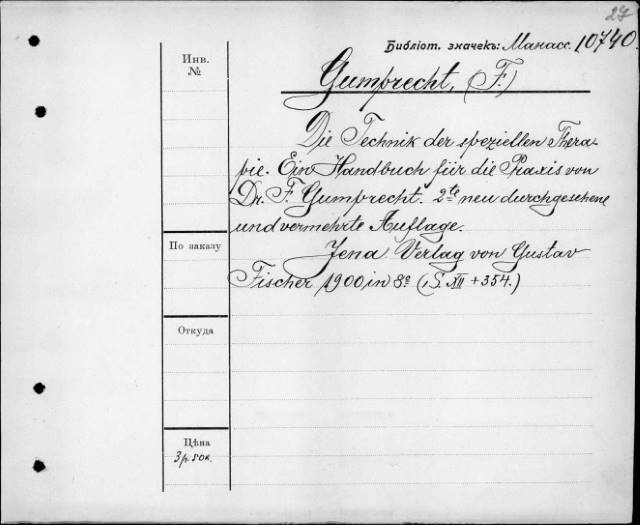 27
Библіот. значекъ: Манасс. 10740
Инв.
№
Gumprecht, (F.)
Die Technik der speziellen Thera-
pie. Ein Handbuch für die Praxis von
Dr. F. Gumprecht. 2te neu durchgesehene
und vermehrte Auflage.
По заказу
Jena Verlag von Gustav
Fischer 1900 in 8º (,S. XII + 354.)
Откуда
Цѣна
3 р. 50 к.